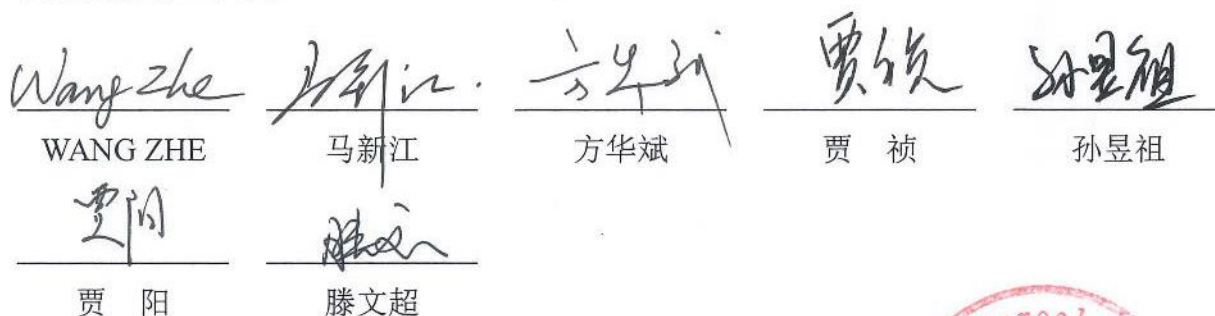 Wang Zhe 马新江 方华斌 贾祯 孙昱祖
WANG ZHE 马新江 方华斌 贾 祯 孙昱祖
贾阳 滕文超
贾 阳 滕文超